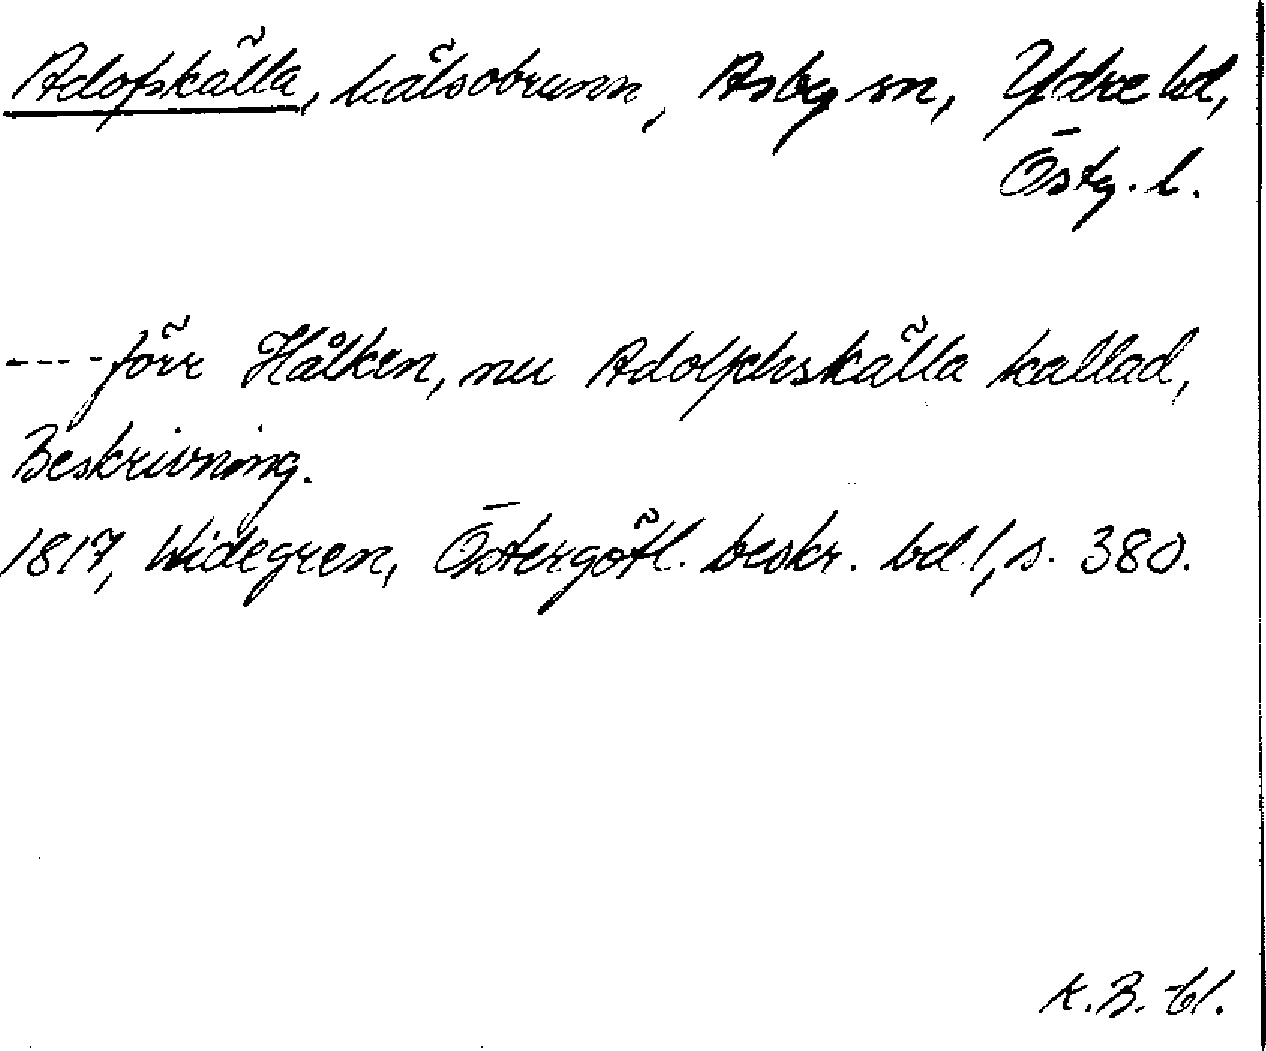 Adofskälla, hälsobrunn, Asby sn, Ydre hd,
Östg. l.
---- förr Hålken, nu Adolphskälla kallad,
Beskrivning.
1817, Widegren, Östergötl. beskr. bd 1, s. 380.
K.B. 61.